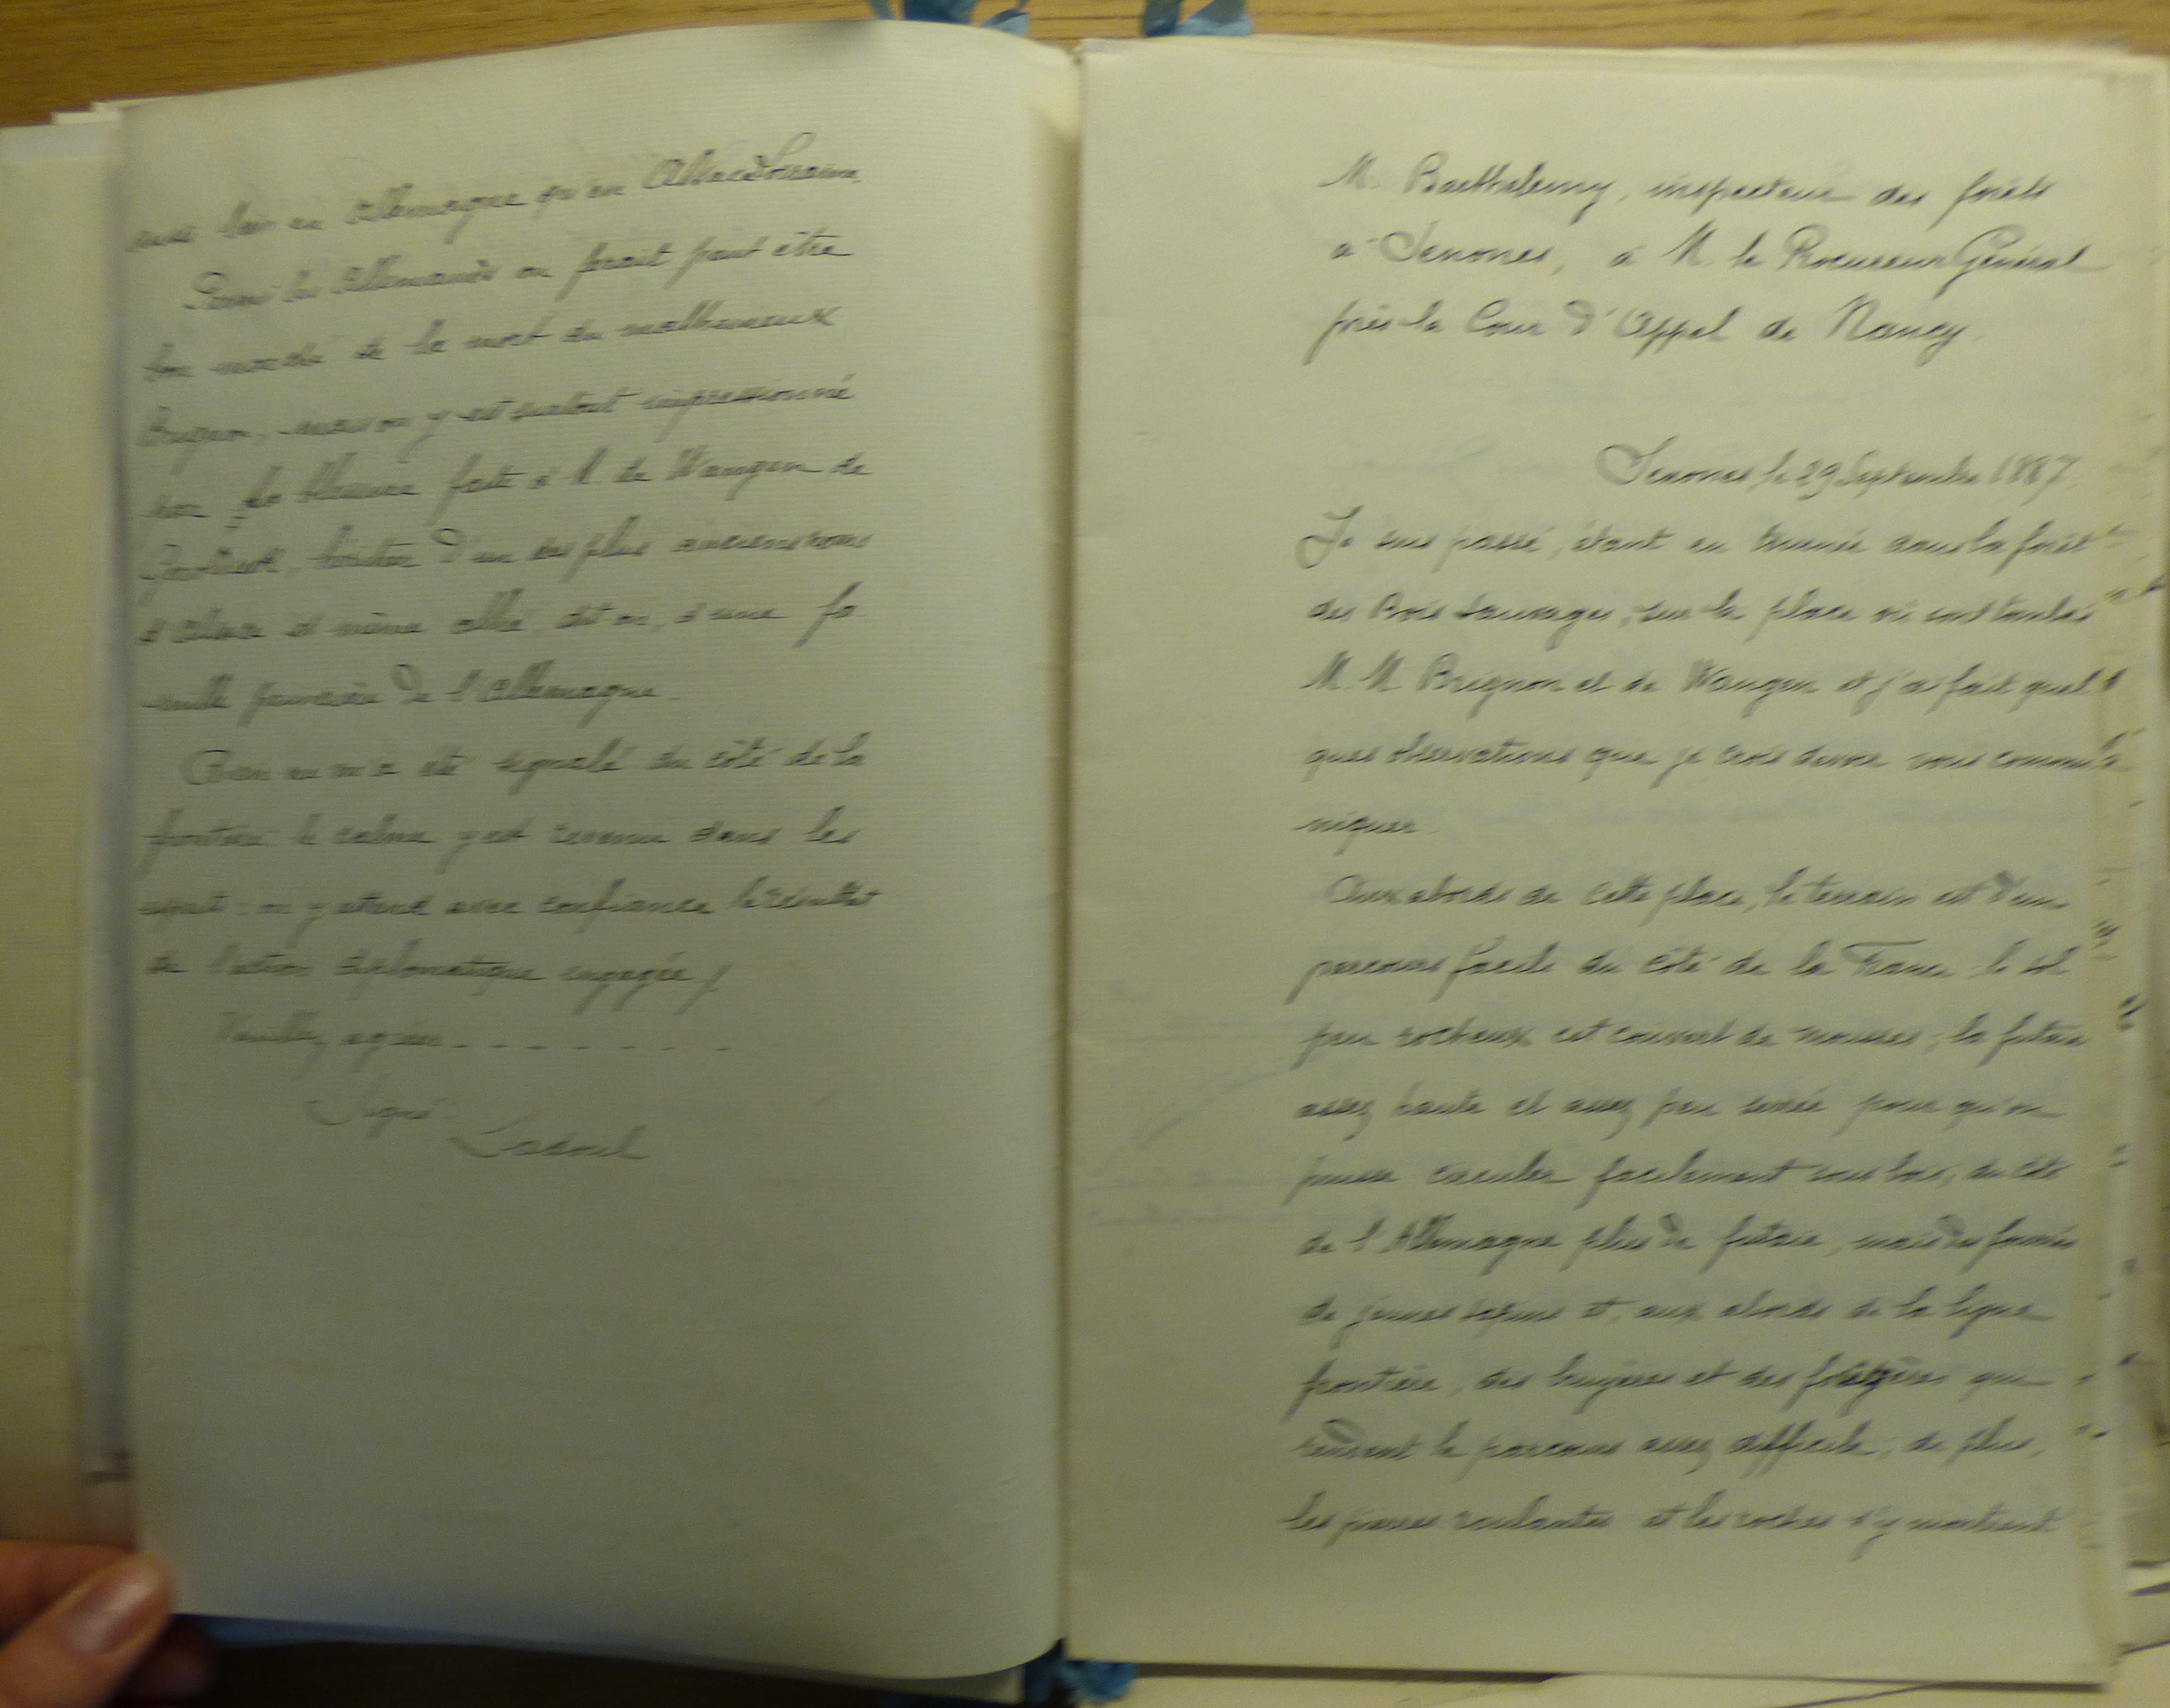 aussi bien en Allemagne qu'en Alsace Lorraine.
Parmi les Allemands on ferait peut être
bon marché de la mort du malheureux
Brignon, mais on y est surtout impressionné
par la blessure faite à M. de Wangen de
héritier d'un des plus anciens noms
d'Alsace et même allié, dit on, d'une fa-
mille princière de l'Allemagne.
Rien ne m'a été signalé du côté de la
frontière le calme y est revenu dans les
esprits : on y attend avec confiance le résultat
de l'action diplomatique engagée /
Veuillez agréer - - - - - - - -
Signé
M. Barthelemy, inspecteur des forêts
à Senones, à M. le Procureur Général
près la Cour d'Appel de Nancy.
Senones, le 29 Septembre 1887.
Je suis passé, étant en tournée dans la forêt
des Bois Sauvages, sur la place où sont tombés
M. M Brignon et de Wangen et j'ai fait quel
ques observations que je crois devoir vous commu
niquer.
Aux abords de cette place, le terrain est d'un
parcours facile du côté de la France le sol
peu rocheux est couvert de mousses, la futaie
assez haute et assez peu serrée pour qu'on
puisse circuler facilement sous bois, du côté
de l'Allemagne plus de futaie, mais des fourrés
de jeunes sapins et, aux abords de la ligne
frontière, des bruyères et des fougères qui
rendent le parcours assez difficile, de plus,
les pierres roulantes et les roches s'y montrent